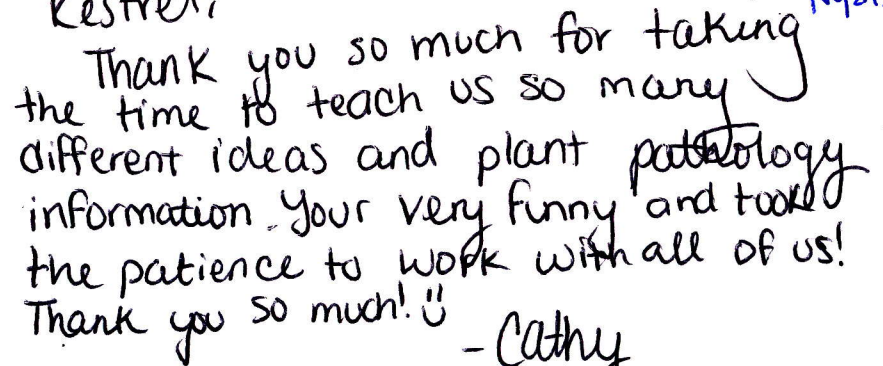 Kestrel,
Thank you so much for taking
the time to teach us so many
different ideas and plant pathology
information. Your very funny and took
the patience to work with all of us!
Thank you so much! ☺
- Cathy